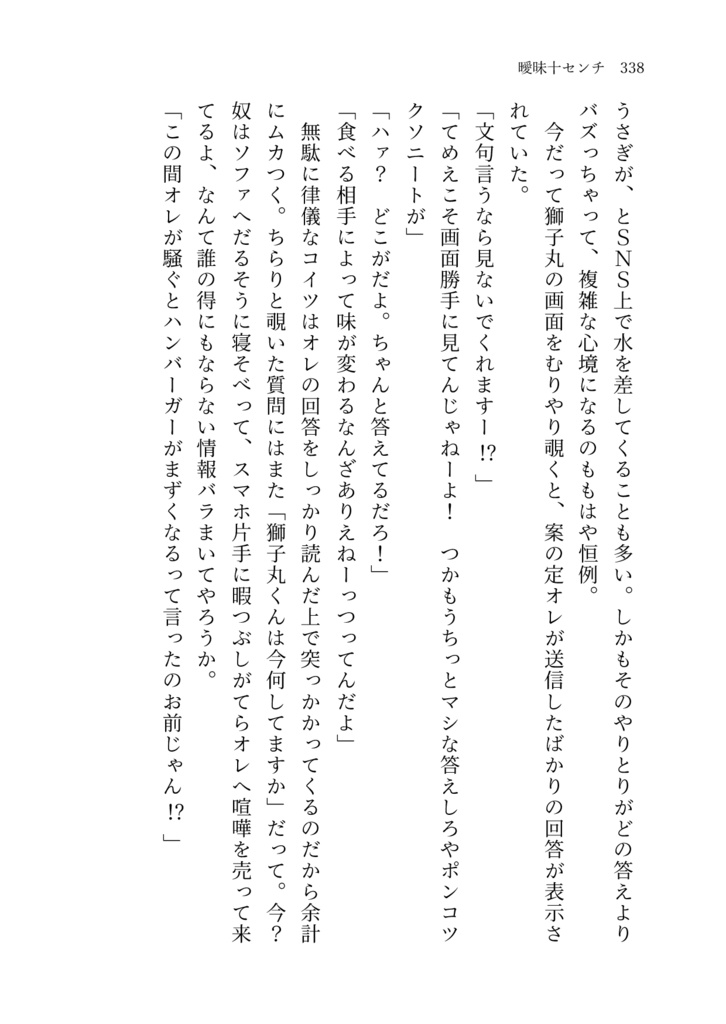 曖昧十センチ 338
うさぎが、とSNS上で水を差してくることも多い。しかもそのやりとりがどの答えより
バズっちゃって、複雑な心境になるのももはや恒例。
　今だって獅子丸の画面をむりやり覗くと、案の定オレが送信したばかりの回答が表示さ
れていた。
「文句言うなら見ないでくれますー⁉」
「てめえこそ画面勝手に見てんじゃねーよ！　つかもうちっとマシな答えしろやポンコツ
クソニートが」
「ハァ？　どこがだよ。ちゃんと答えてるだろ！」
「食べる相手によって味が変わるなんざありえねーっつってんだよ」
　無駄に律儀なコイツはオレの回答をしっかり読んだ上で突っかかってくるのだから余計
にムカつく。ちらりと覗いた質問にはまた「獅子丸くんは今何してますか」だって。今？
奴はソファへだるそうに寝そべって、スマホ片手に暇つぶしがてらオレへ喧嘩を売って来
てるよ、なんて誰の得にもならない情報バラまいてやろうか。
「この間オレが騒ぐとハンバーガーがまずくなるって言ったのお前じゃん⁉」